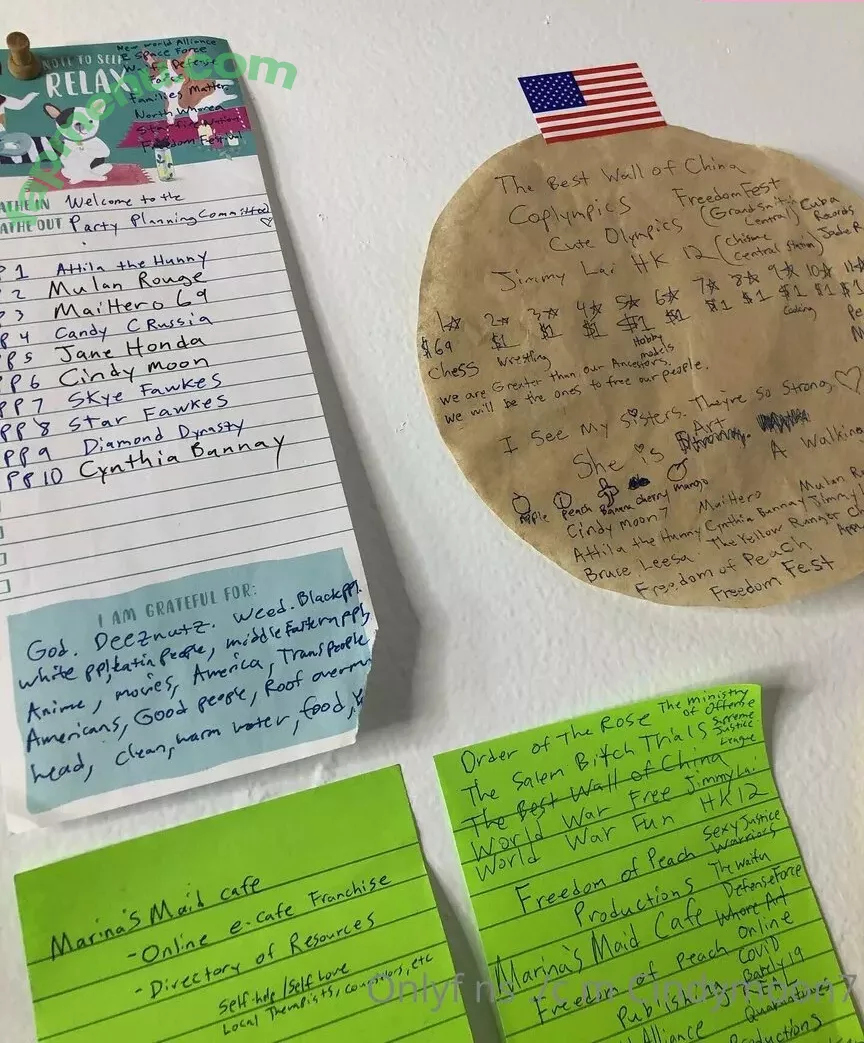 New World Alliance
Space Force
Families Matter
North Whorea
Freedom Festival
NOTE TO SELF
RELAX
ATHE IN Welcome to the
ATHE OUT Party Planning Committee
P 1 Attila the Hunny
2 Mulan Rouge
P 3 MaiHero 69
P 4 Candy CRussia
P 5 Jane Honda
PP 6 Cindy moon
PP 7 Skye Fawkes
PP 8 Star Fawkes
PP 9 Diamond Dynasty
PP 10 Cynthia Bannay
I AM GRATEFUL FOR:
God. Deeznutz. Weed. Black ppl.
white ppl, Latin People, middle Eastern ppl,
Anime, movies, America, Trans people
Americans, Good people, Roof over my
head, clean, warm water, food,
The Best Wall of China
Coplympics FreedomFest
Cute Olympics (Grand Smith Central) Cuba Records
Jimmy Lai HK 12 (Chisme Central Station) Jade R
1☆ 2☆ 3☆ 4☆ 5☆ 6☆ 7☆ 8☆ 9☆ 10☆ 11☆
$69 $1 $1 $1 $1 $1 $1 $1 $1 $1 $1
Chess Wrestling Hobby models
we are Greater than our Ancestors.
we will be the ones to free our people.
I See My sisters. They're so Strong ♡
She is Art A Walking
Apple Peach Banana cherry mango
Cindy Moon 7 MaiHero Mulan
Attila the Hunny Cynthia Bannay Jimmy L
Bruce Leesa The Yellow Ranger
Freedom of Peach
Freedom Fest
Marina's Maid cafe
- Online e-cafe Franchise
- Directory of Resources
Self-help/Self Love
Local Therapists, counselors, etc
Order of The Rose The ministry of Offense
The Salem Bitch Trials Supreme Justice League
The Best Wall of China
World War Free Jimmy Lai
World War Fun HK12
Freedom of Peach Sexy Justice Warriors
Productions The Waifu Defense Force
Marina's Maid Cafe Whore Art
Freedom of Peach Online
Publishing Covid Barely 19
Alliance Quarantions
Productions
Cindymoon7